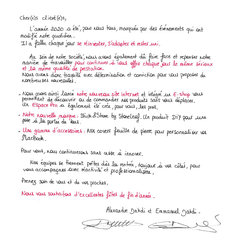 Cher(e)s client(e)s,
L'année 2020 a été, pour nous tous, marquée par des événements qui ont
modifié notre quotidien.
Il a fallu chaque jour se réinventer, s'adapter et rester uni.
Au sein de notre société, nous avons également dû faire face et repenser notre
manière de travailler pour continuer à vous offrir chaque jour le même sérieux
et la même qualité de prestation.
Nous avons donc travaillé avec détermination et conviction pour vous proposer de
nombreuses nouveautés.
Nous avons ainsi lancé notre nouveau site internet et intégré un E-shop vous
permettant de découvrir ou de commander nos produits sans vous déplacer.
Un Espace Pro a également été créé, pour vous, nos pros.
Notre nouvelle marque : Stick & Stone by StoneLeaf. Un produit DIY pour une
pose à la portée de tous.
Une gamme d'accessoires : Nos carnet feuille de pierre pour personnaliser vos
MacBook.
Pour vous, nous continuerons sans cesse à innover.
Nos équipes se tiennent prêtes dès la rentrée, toujours à vos côtés, pour
vous accompagner avec réactivité et professionnalisme.
Prenez soin de vous et de vos proches.
Nous vous souhaitons d'excellentes fêtes de fin d'année.
Alexandre et Emmanuel